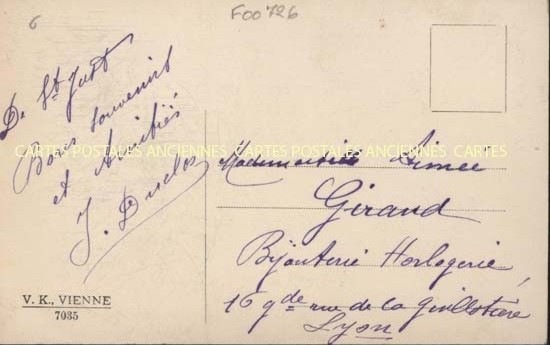 6
F00726
De St Just
Bons Souvenirs
et Amitiés
J. Duclos
CARTES POSTALES ANCIENNES CARTES POSTALES ANCIENNES CARTES
Mademoiselle Aimée
Giraud
Bijouterie Horlogerie,
16 gde rue de la Guillotière
Lyon
V. K., VIENNE
7035